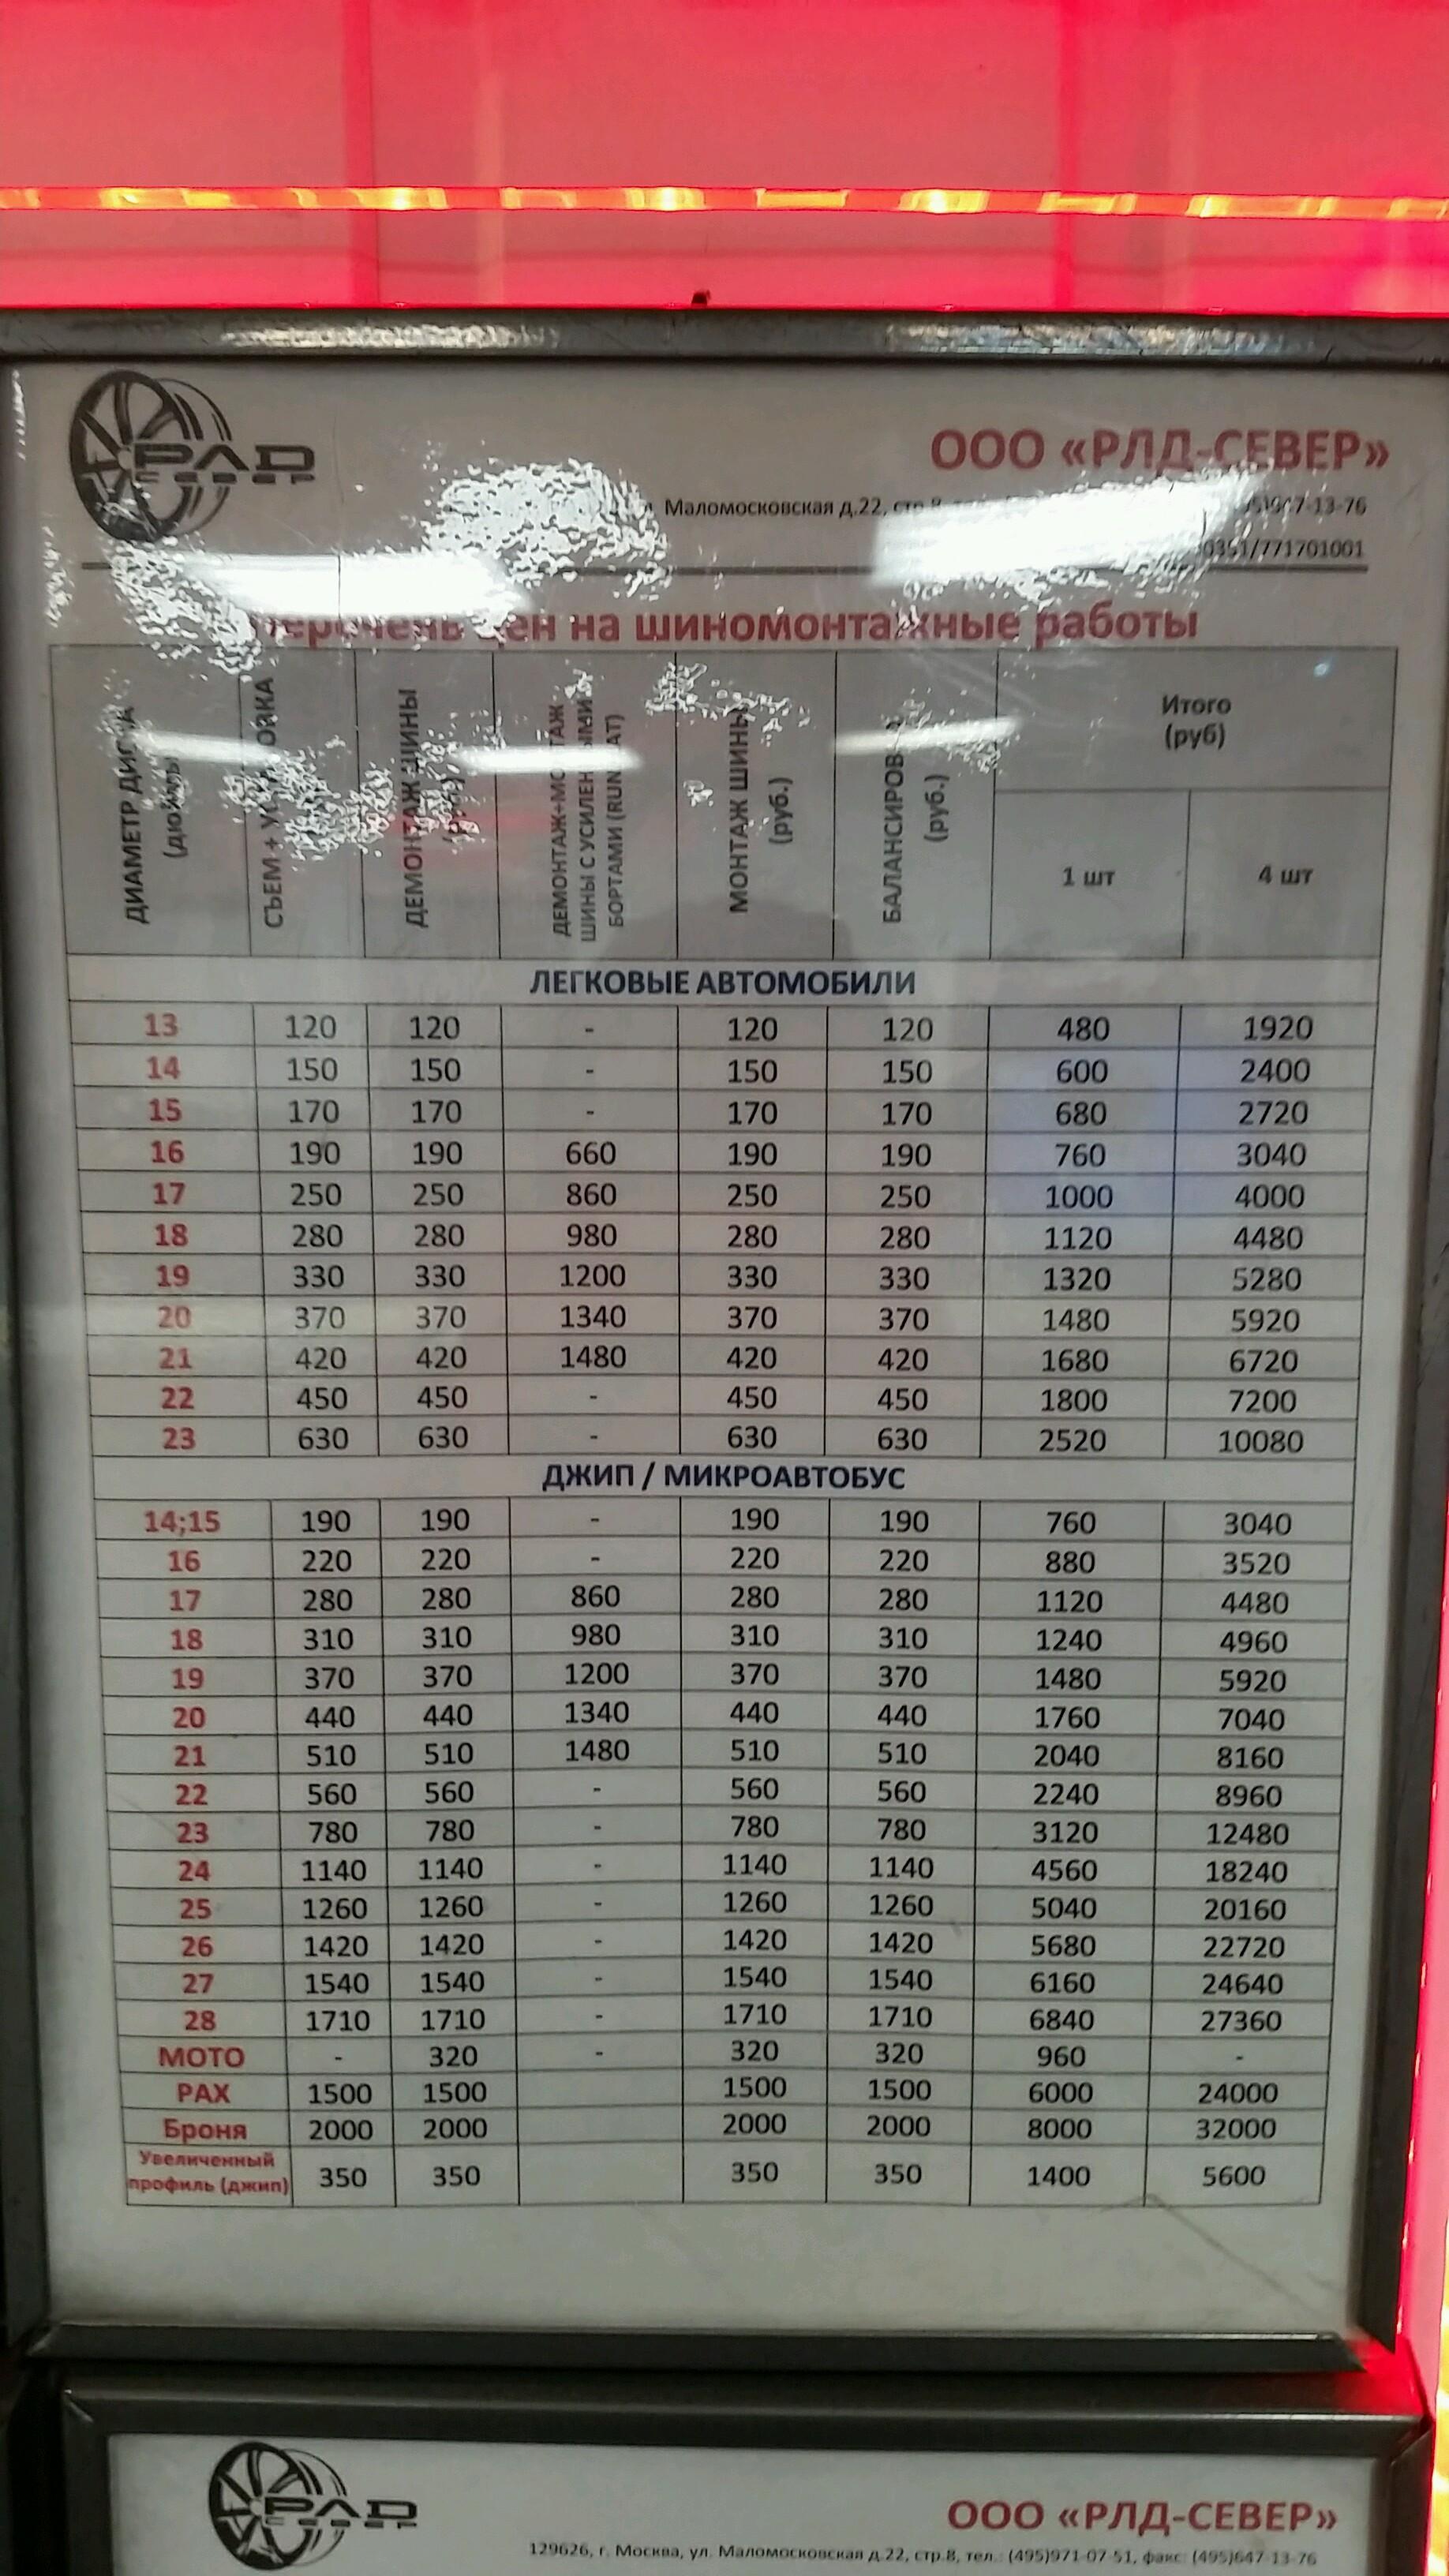 РЛД
СЕВЕР
ООО «РЛД-СЕВЕР»
Маломосковская д.22, стр.8
7-13-76
0351/771701001
Перечень цен на шиномонтажные работы
ДИАМЕТР ДИСКА
(дюймы)
СЪЕМ + УСТАНОВКА
ДЕМОНТАЖ ШИНЫ
(руб.)
ДЕМОНТАЖ+МОНТАЖ
ШИНЫ С УСИЛЕННЫМИ
БОРТАМИ (RUN FLAT)
МОНТАЖ ШИНЫ
(руб.)
БАЛАНСИРОВКА
(руб.)
Итого
(руб)
1 шт 4 шт
ЛЕГКОВЫЕ АВТОМОБИЛИ
13 120 120 - 120 120 480 1920
14 150 150 - 150 150 600 2400
15 170 170 - 170 170 680 2720
16 190 190 660 190 190 760 3040
17 250 250 860 250 250 1000 4000
18 280 280 980 280 280 1120 4480
19 330 330 1200 330 330 1320 5280
20 370 370 1340 370 370 1480 5920
21 420 420 1480 420 420 1680 6720
22 450 450 - 450 450 1800 7200
23 630 630 - 630 630 2520 10080
ДЖИП / МИКРОАВТОБУС
14;15 190 190 - 190 190 760 3040
16 220 220 - 220 220 880 3520
17 280 280 860 280 280 1120 4480
18 310 310 980 310 310 1240 4960
19 370 370 1200 370 370 1480 5920
20 440 440 1340 440 440 1760 7040
21 510 510 1480 510 510 2040 8160
22 560 560 - 560 560 2240 8960
23 780 780 - 780 780 3120 12480
24 1140 1140 - 1140 1140 4560 18240
25 1260 1260 - 1260 1260 5040 20160
26 1420 1420 - 1420 1420 5680 22720
27 1540 1540 - 1540 1540 6160 24640
28 1710 1710 - 1710 1710 6840 27360
МОТО - 320 - 320 320 960 -
PAX 1500 1500 1500 1500 6000 24000
Броня 2000 2000 2000 2000 8000 32000
Увеличенный
профиль (джип) 350 350 350 350 1400 5600
РЛД
СЕВЕР
ООО «РЛД-СЕВЕР»
129626, г. Москва, ул. Маломосковская д.22, стр.8, тел.: (495)971-07-51, факс: (495)647-13-76